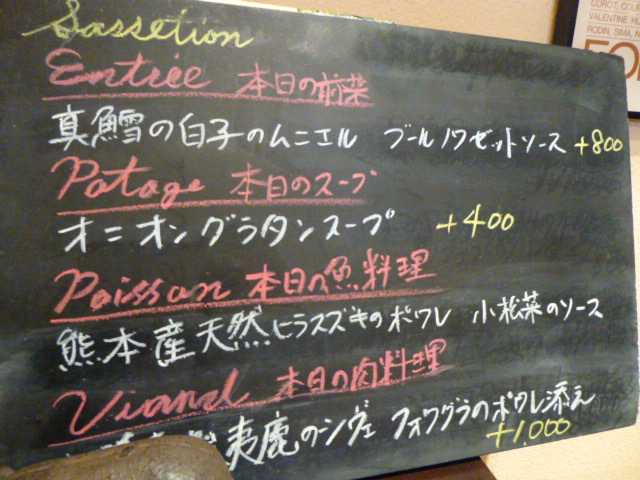 Sassetion
Entrée 本日の前菜
真鱈の白子のムニエル ブールノワゼットソース +800
Potage 本日のスープ
オニオングラタンスープ +400
Poisson 本日の魚料理
熊本産天然ヒラスズキのポワレ 小松菜のソース
Viand 本日の肉料理
夷鹿のシヴェ フォワグラのポワレ添え
+1,000
COROT, COU
VALENTINE HU
RODIN, SIMA, N